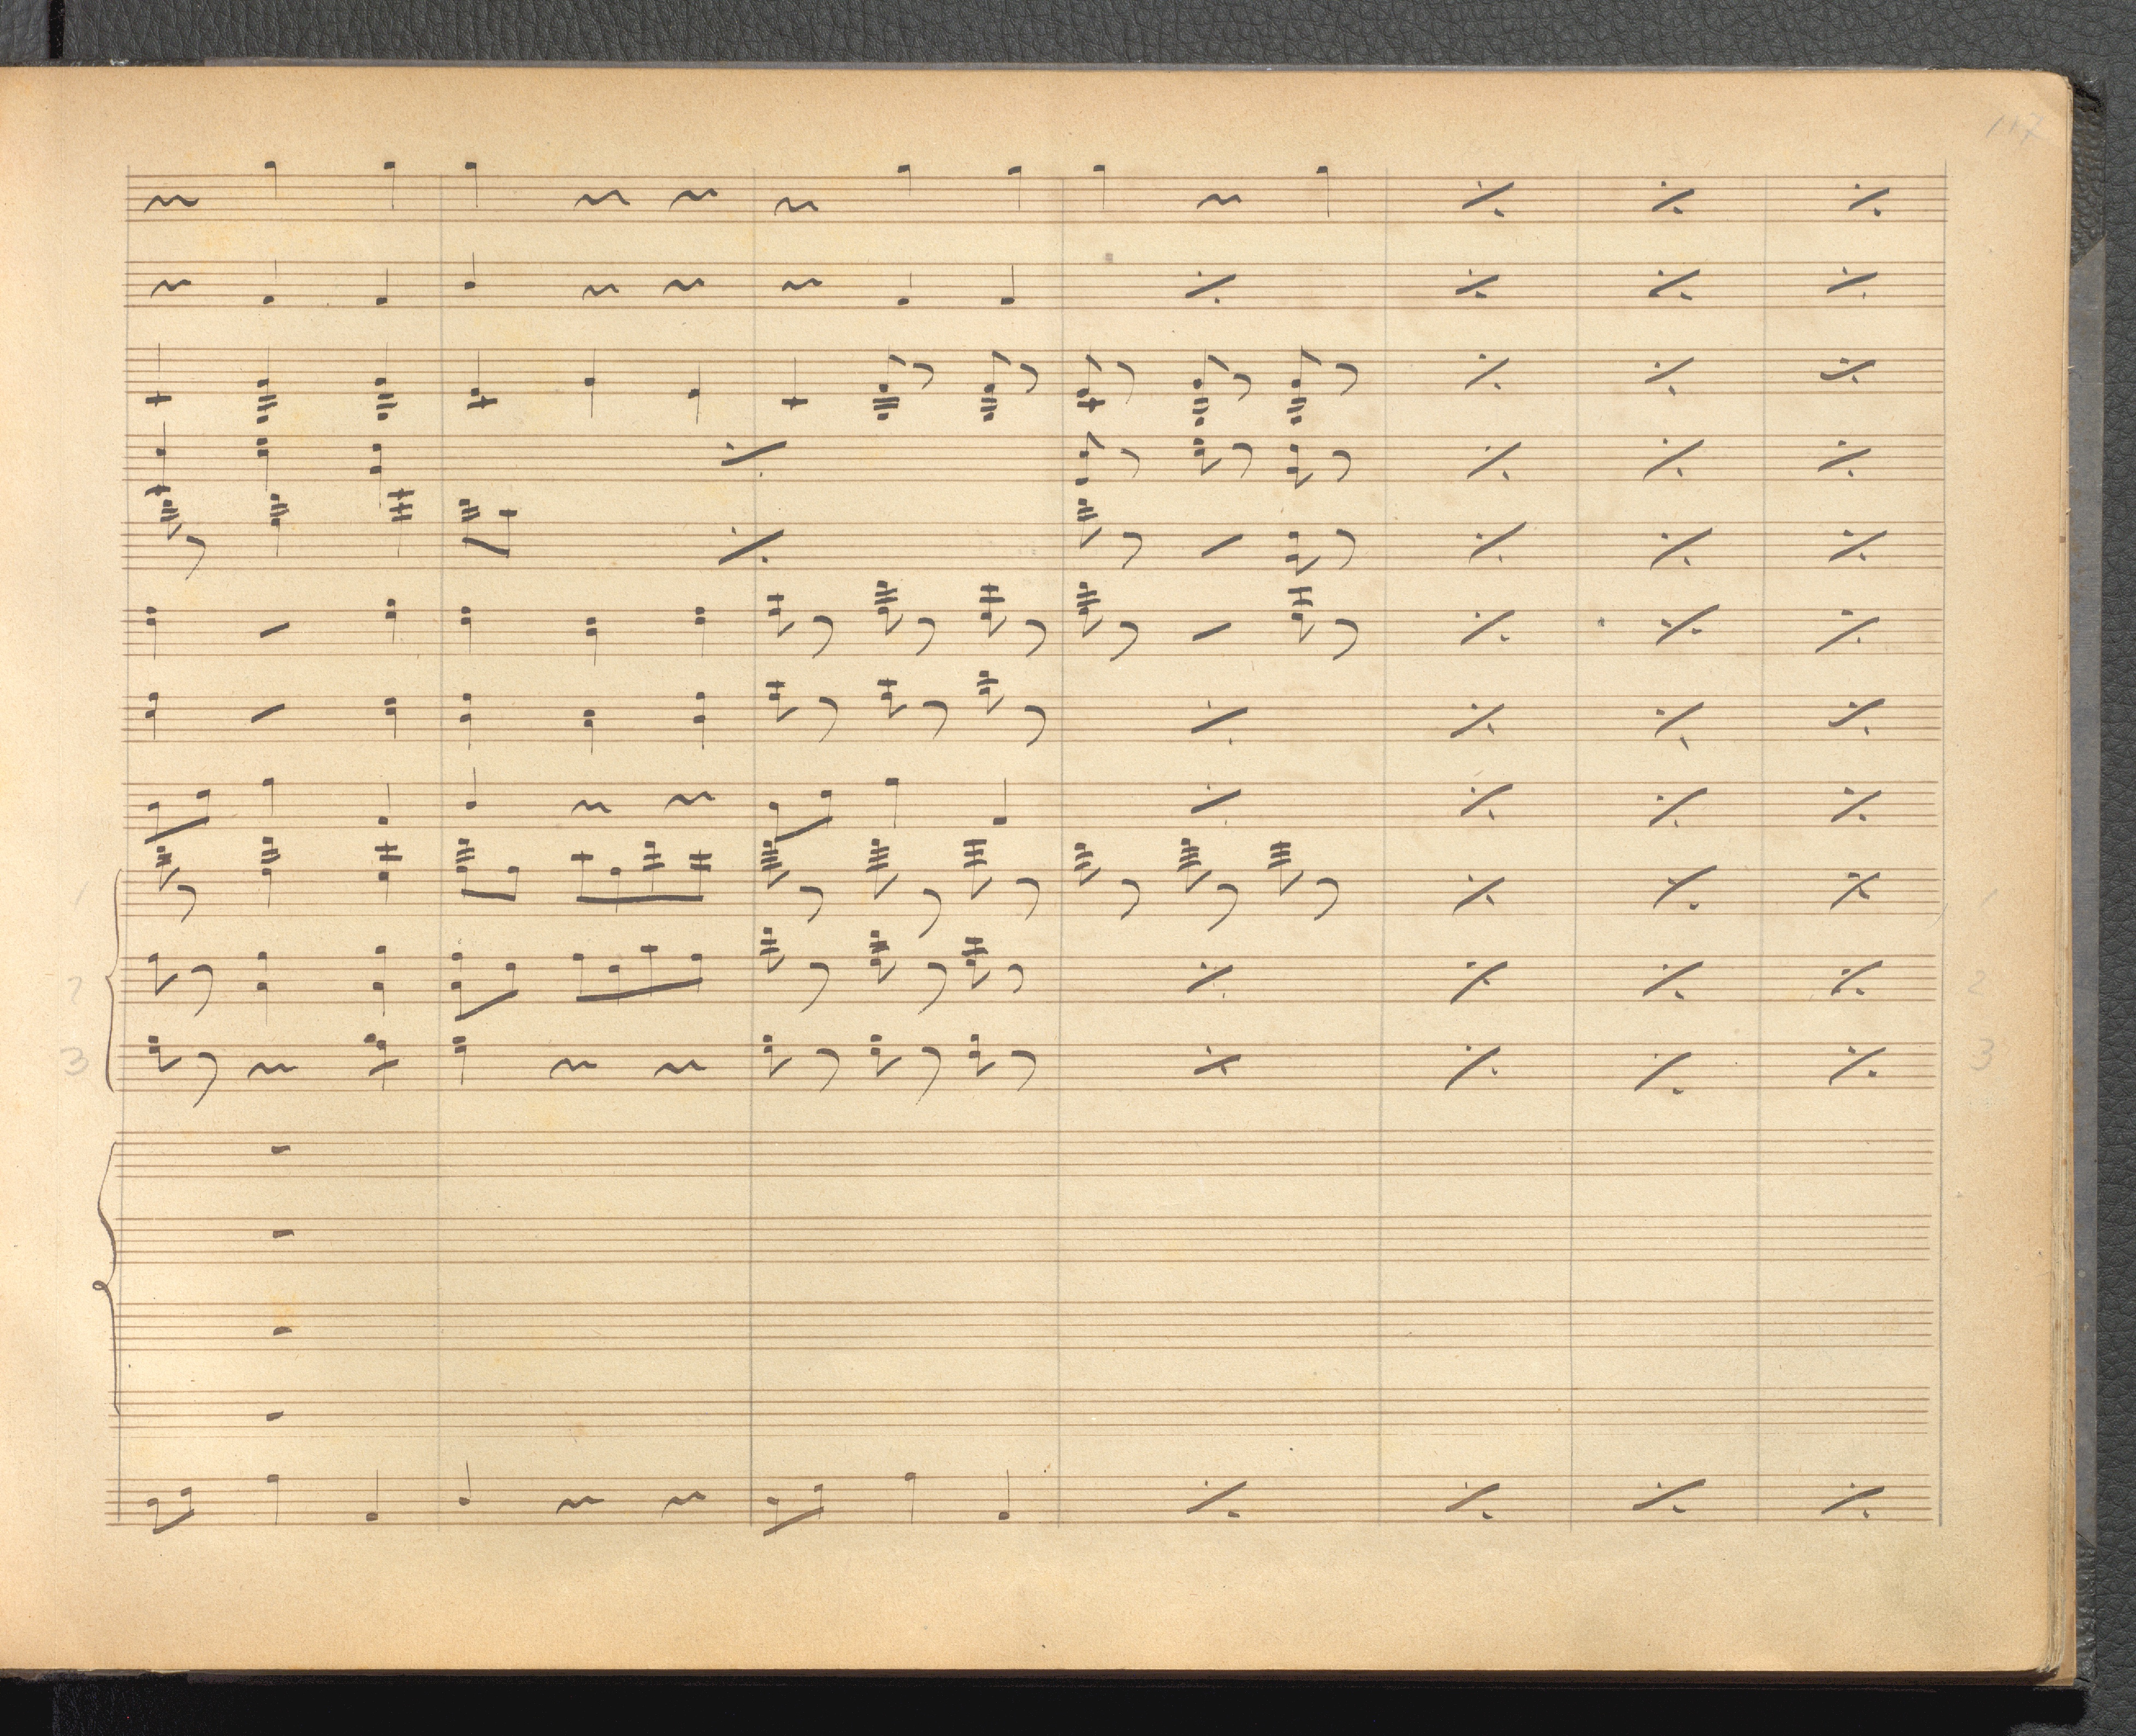 1 1
2 2
3 3